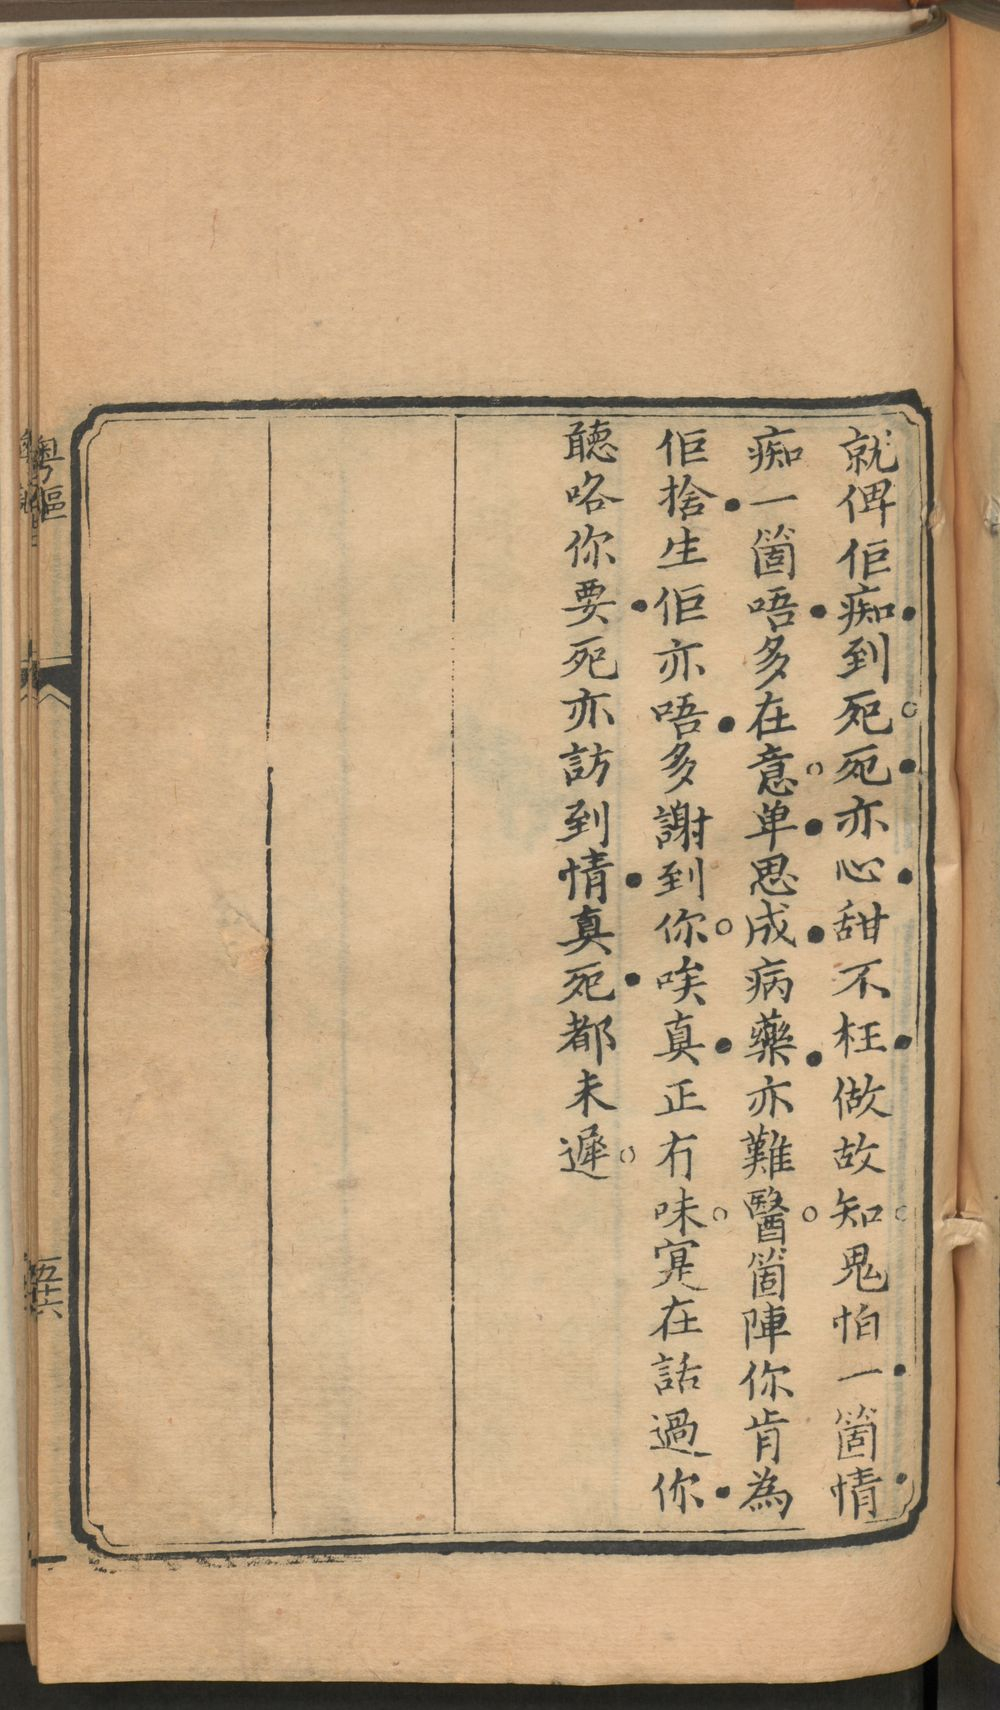 就俾佢痴到死死亦心甜不枉做故知鬼怕一箇情
痴一箇唔多在意单思成病藥亦難醫箇陣你肯為
佢捨生佢亦唔多謝到你唉真正冇味寔在話過你
聽咯你要死亦訪到情真死都未遲
粤謳
五十六